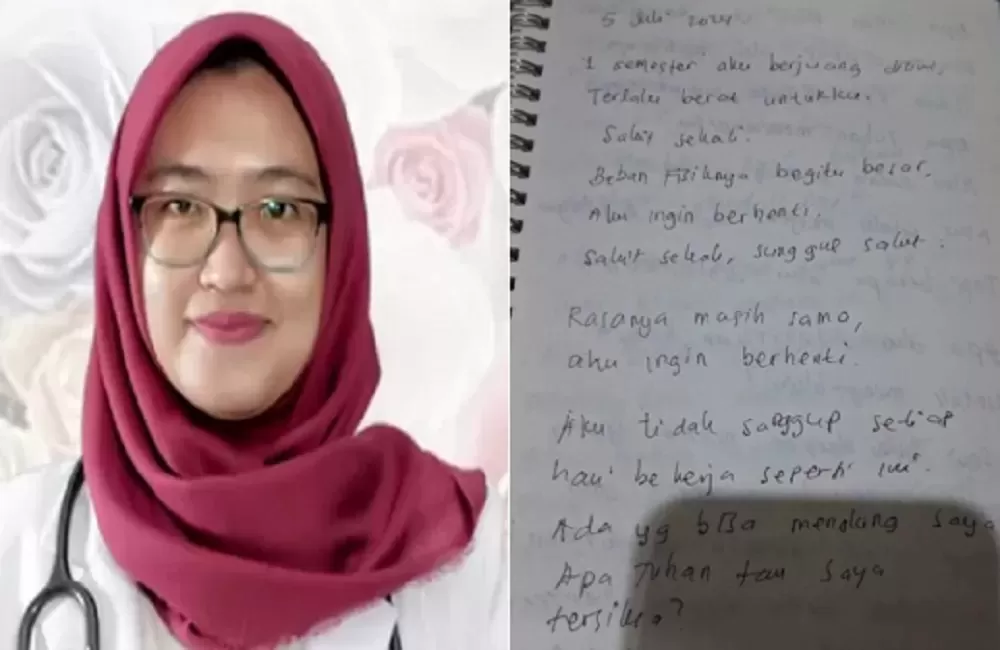 5 Juli 2024
1 semester aku berjuang disini,
Terlalu berat untukku.
Sakit sekali.
Beban Fisiknya begitu besar,
Aku ingin berhenti.
Sakit sekali, sunggup sakit.
Rasanya masih sama,
aku ingin berhenti.
Aku tidak sanggup setiap
hari bekerja seperti ini.
Ada yg bisa menolong saya
Apa Tuhan tau saya
tersiksa?